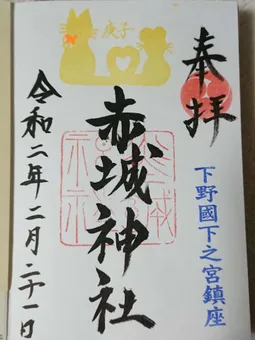 奉拝
下野國下之宮鎮座
赤城神社
庚子
令和二年二月二十一日